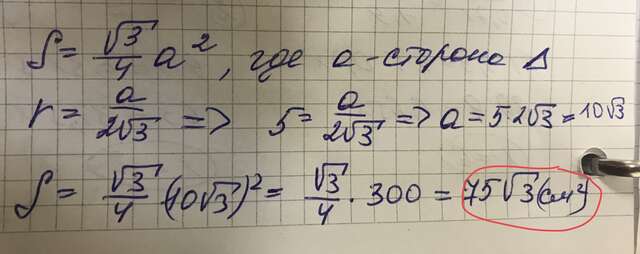 S = √3/4 a², где a - сторона Δ
r = a/2√3 => 5 = a/2√3 => a = 5 2√3 = 10√3
S = √3/4 · (10√3)² = √3/4 · 300 = 75√3 (см²)